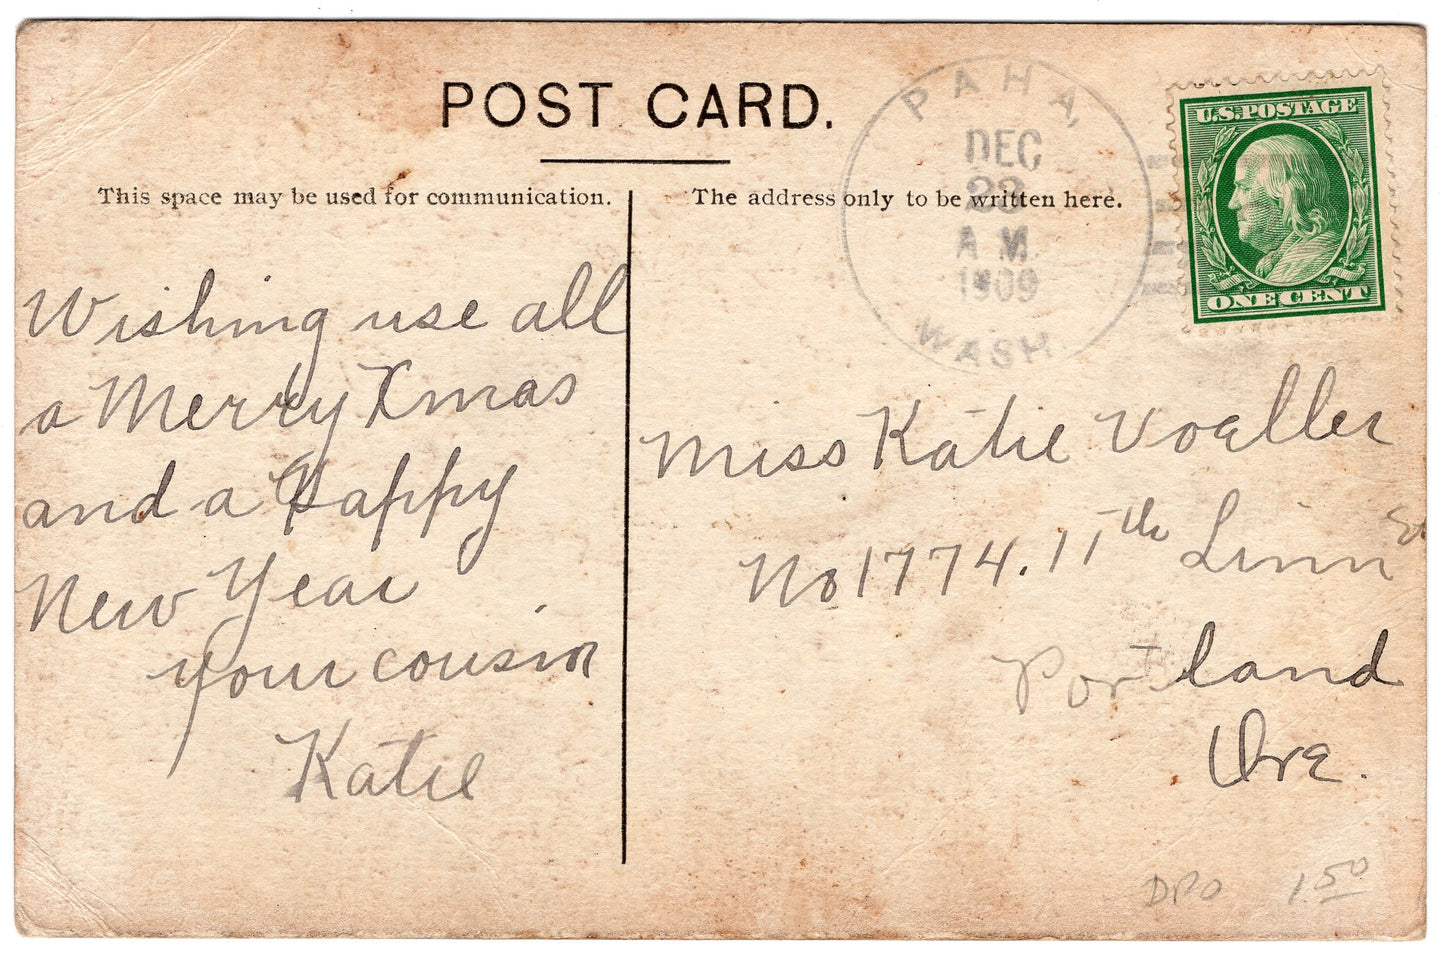 POST CARD.
This space may be used for communication.
The address only to be written here.
PAHA,
DEC
23
A.M.
1909
WASH.
U.S. POSTAGE
ONE CENT
Wishing use all
a Merry Xmas
and a Happy
New Year
your cousin
Katie
Miss Katie Voeller
No 1774. 11th Linn St
Portland
Ore.
DPO 1.50